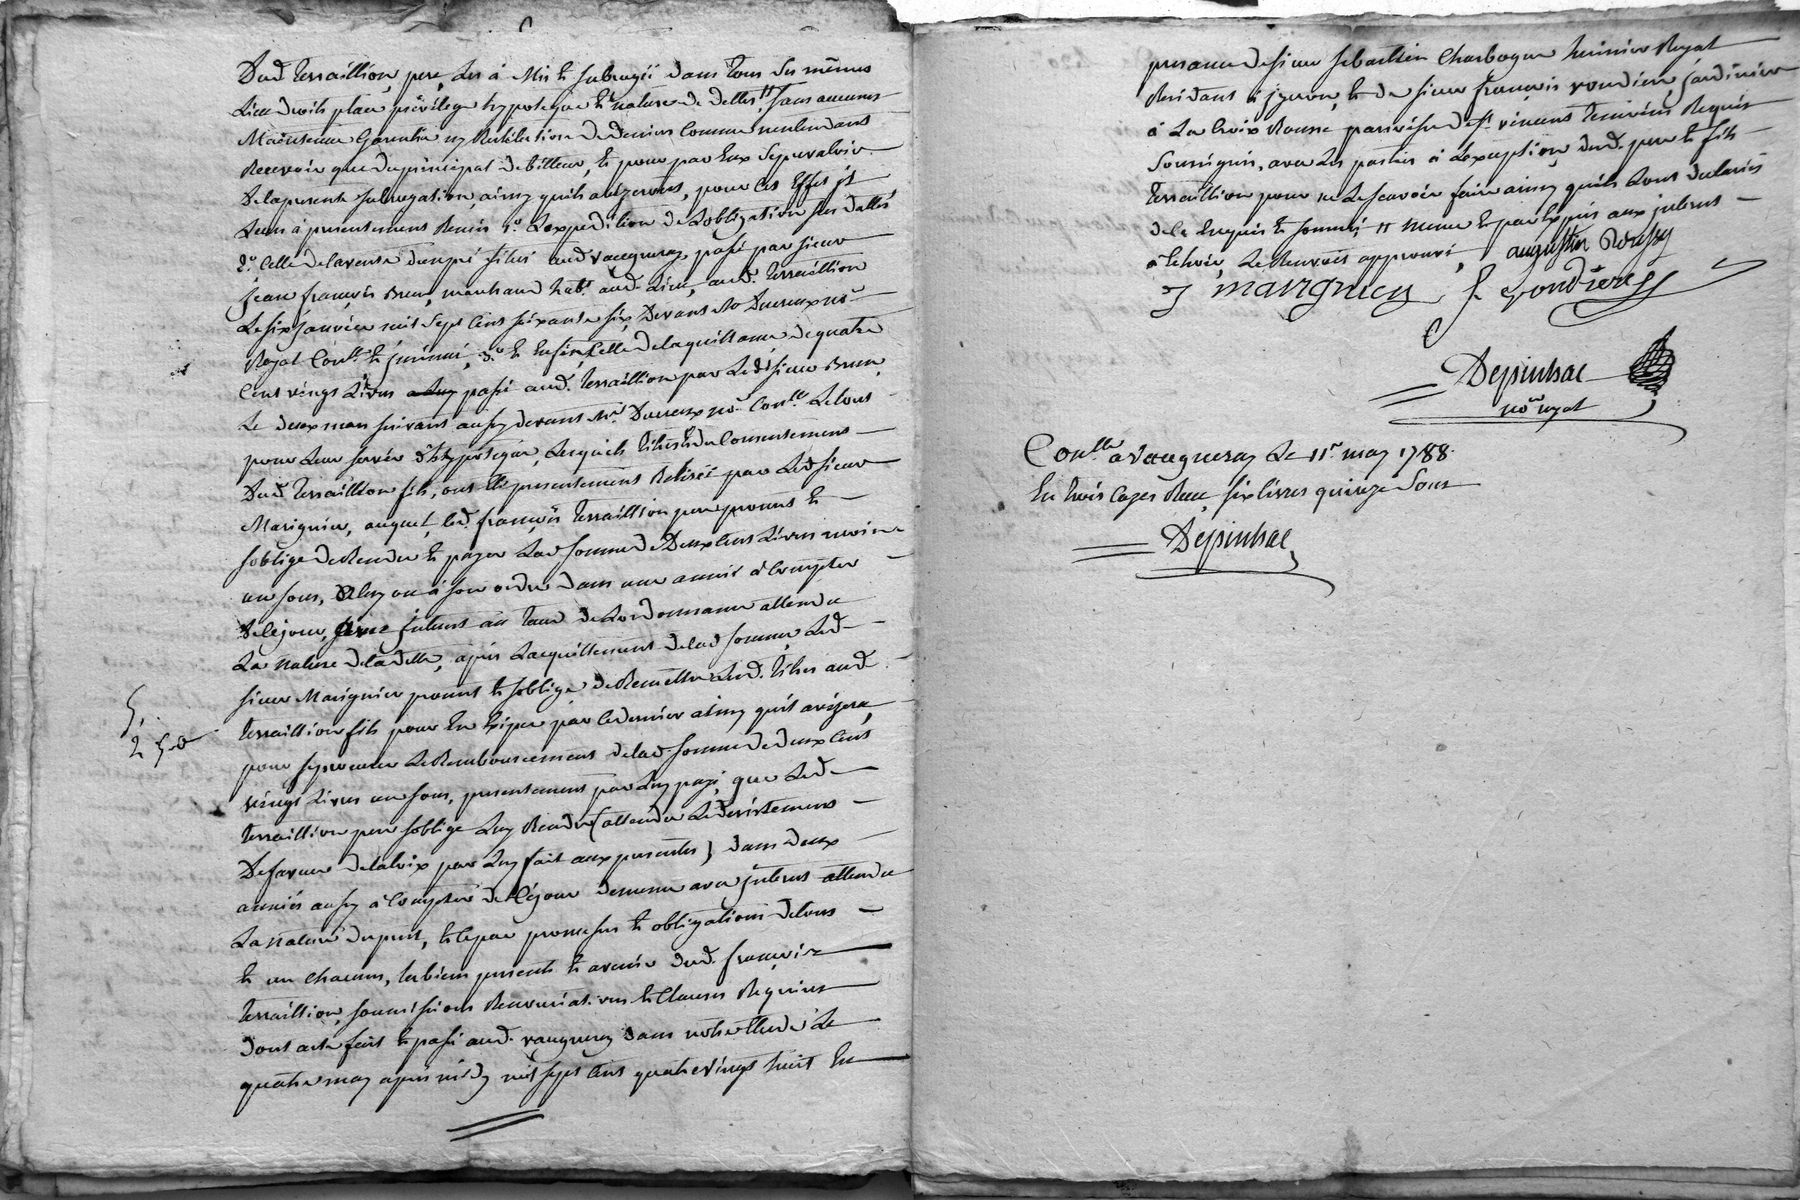 Dud. terraillion, pere, Les a Mis & subrogés dans tous ses mêmes
Lieu droits place privilege hypoteque & nature de dettes, sans aucunes
Maintenue Garentie ny Restitution de deniers comme n'entendant
Recevoir que du principal debitteur, & pour par Eux se prevaloir
De la presente subrogation, ainsy quils aviseront, pour les Effet jl
Leur à presentement Remis 1°. L'expedition de Lobligation sus dattée
2°. celle de la vente d'un pré situé aud. vaugneray, passé par sieur
jean françois Brun, marchand habt. aud. Lieu, aud. terraillion
Le six janvier mil sept cent soixante six, Devant Me Ducreux nore.
Royal Conllé & 3°. & Enfin celle de la quittance de quatre
Cent vingt Livres passé aud. terraillion par Ledt sieur Brun,
Le deux mars suivant aussy devant Me. Ducreux nore. Conllé Le tout
pour Leur servir d'hypoteque, Lesquels titres & du Consentement
Dud. terraillion fils, ont été presentement Retirés par Led. sieur
Marignier, auquel, led. françois terraillion pere promet &
s'oblige de Rendre & payer Lad. somme de Deux Cent Livres
un sous, à Luy ou à son ordre dans une année à Compter
De ce jour, avec jnterest au taux de Lordonnance attendu
La nature de la dette, après Lacquittement de lad. somme, Led.
sieur Marignier promet & s'oblige de Remettre Lesd. titres aud.
terraillion fils pour En Exiger par ce dernier ainsy quil avisera,
pour se procurer Le Remboursement de lad. somme de deux Cent
vingt Livres un sous, presentement par Luy payé, que Led.
terraillion pere s'oblige Luy Rendre (attendu Le desistement
De faveur de la voix par Luy fait aux presentes) dans deux
années aussy à Compter de Ce jour de meme avec jnterest attendu
La nature du prest, & ce par promesses & obligations de tous
& un chacuns, les biens presents & avenir dud. françois
terraillion, soumissions Renonciations & Clauses Requises
Dont acte fait & passé aud. vaugneray dans notre Etude Le
quatre may après midy mil sept Cent quatre vingt huit En
presence de sieur sebastien Charbogne huissier Royal
Residant à jzeron, & de sieur françois rondiere, jardinier
à La Croix Rousse parroisse de St. vincent temoins Requis
soussignés, avec Les parties à L'exception dud. pere & fils
terraillion pour ne Le sçavoir faire ainsy quils L'ont declarés
de ce Enquis & sommés, meme & par Exprès aux jnterest
Le Renvois approuvé,
augustin
J marignier f. rondiere
Depinhac
nore royal
Conllé. a vaugneray Le 11e. may 1788.
En trois Cazes Reçu, six livres quinze sous
Depinhac